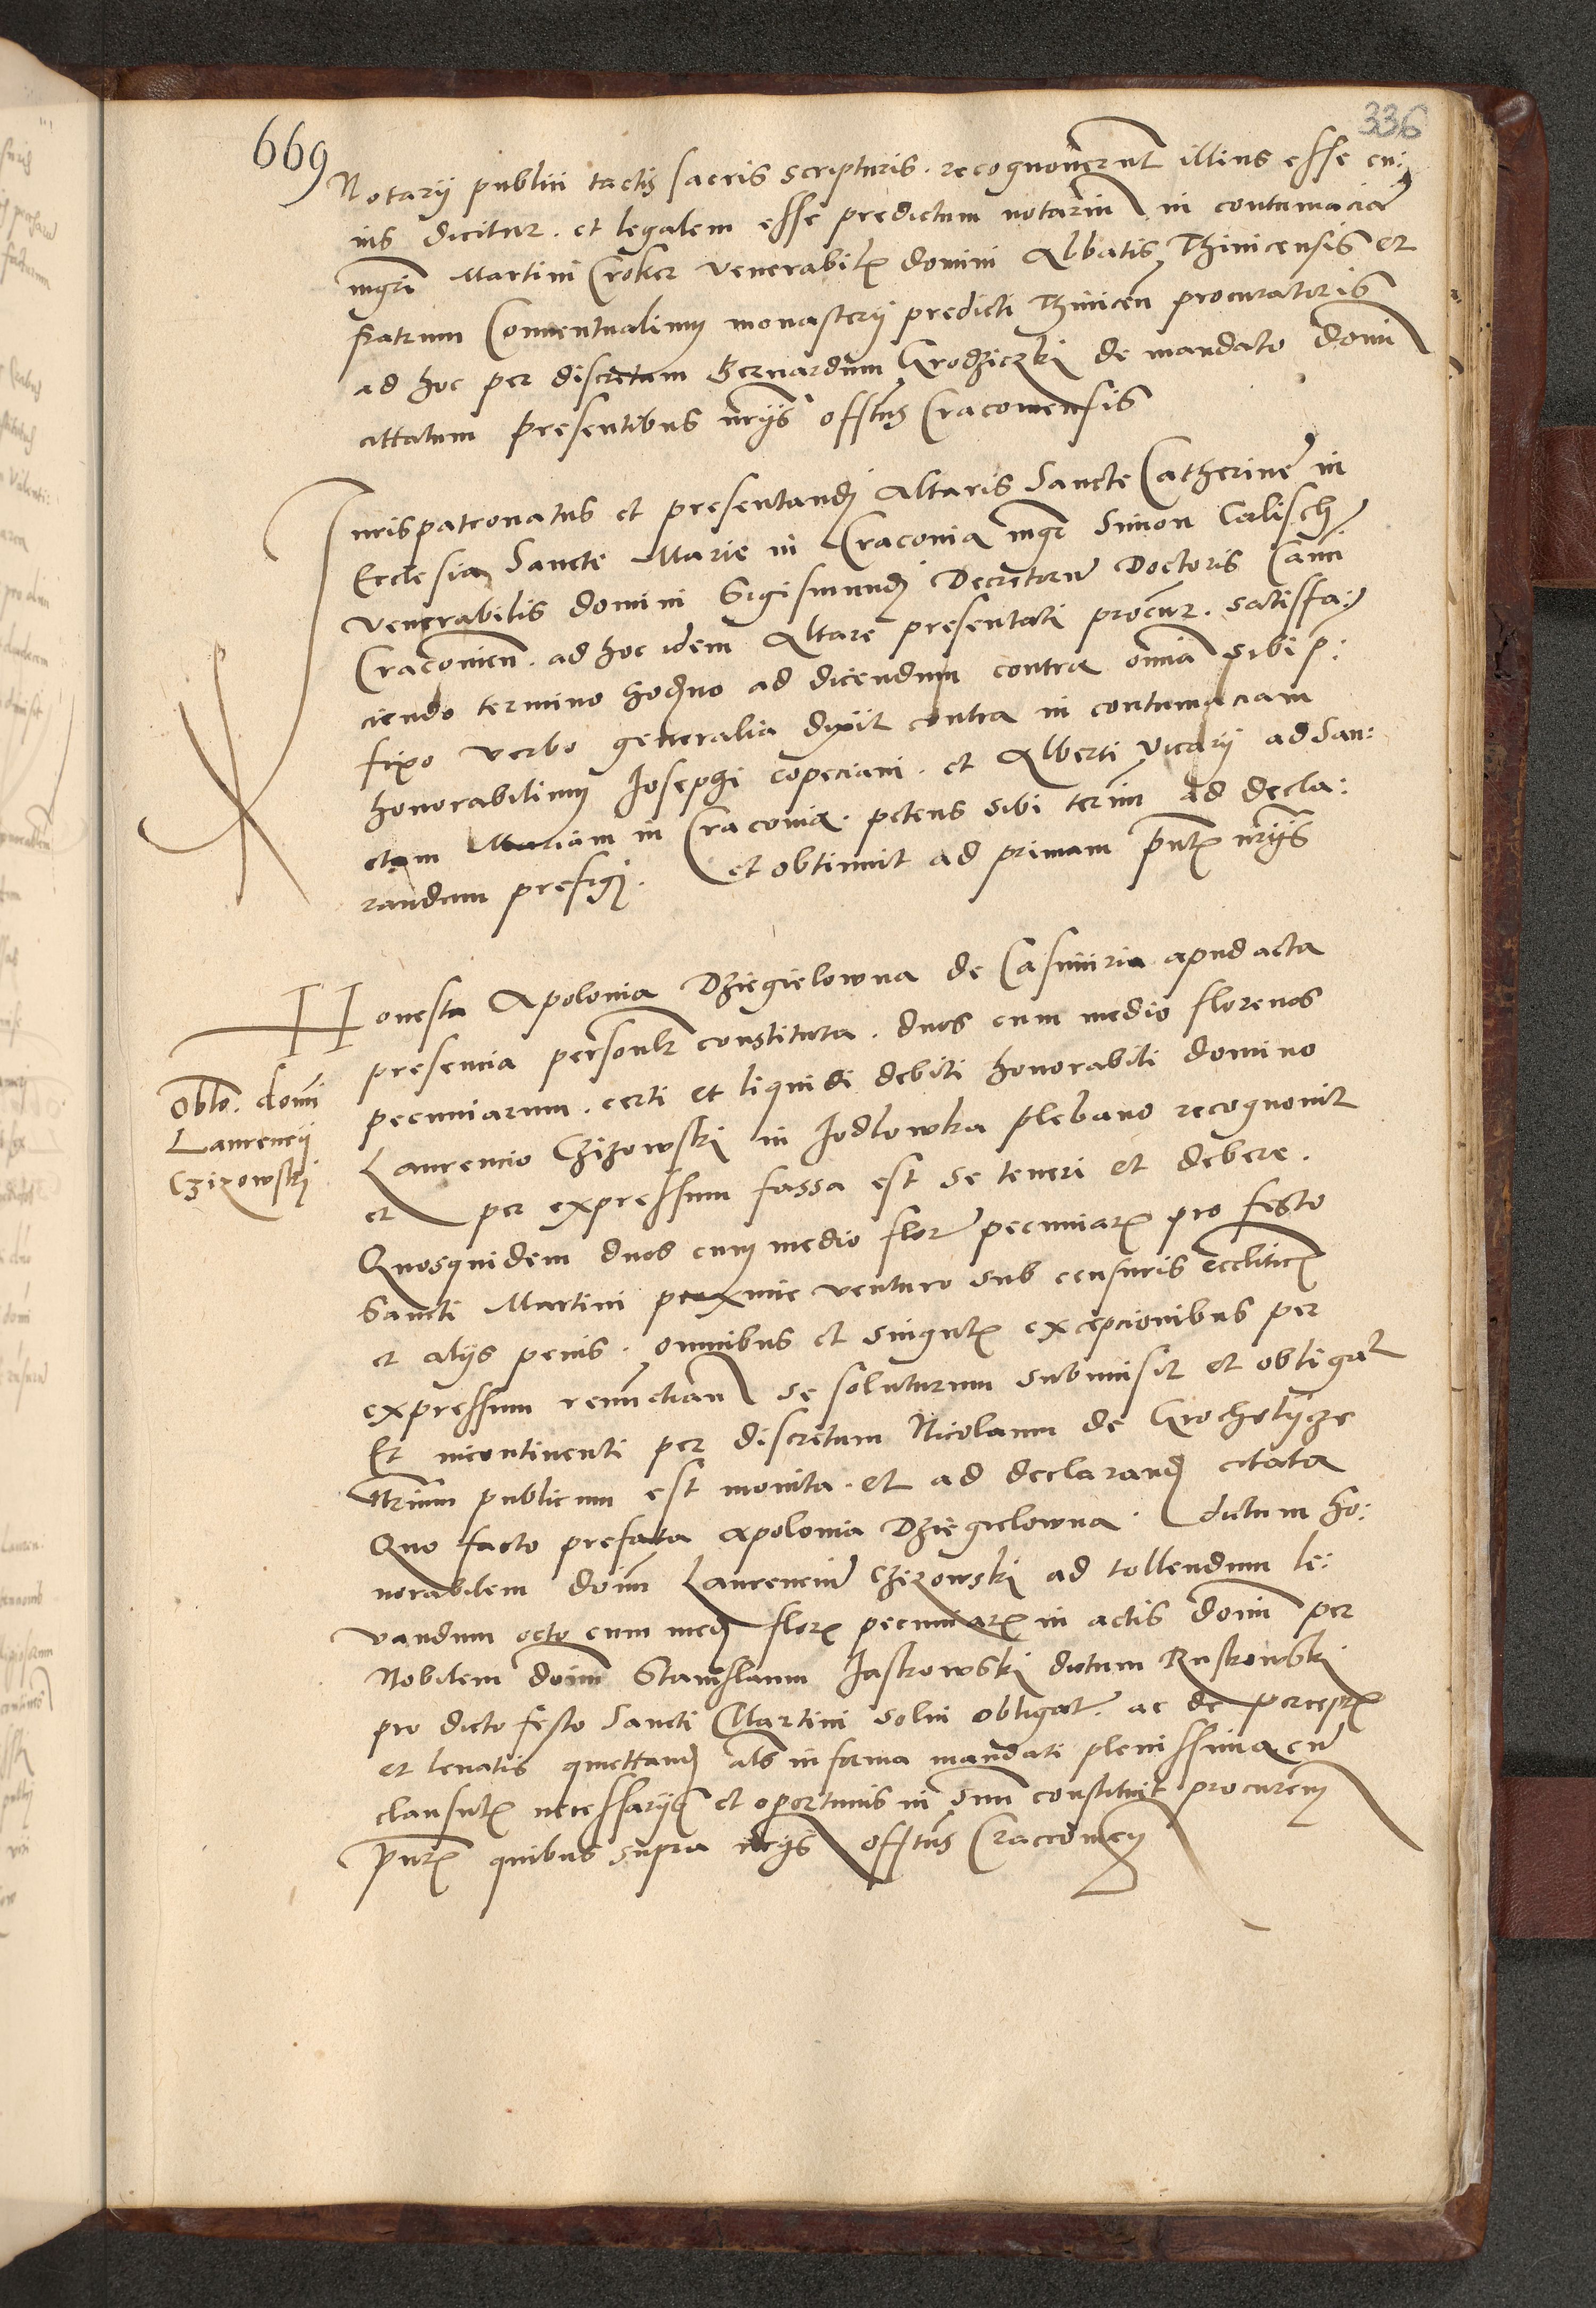 669
336
Notarij publici tactis sacris scripturis. recognoverunt illius esse cu:
ius dicitur. et legalem esse predictum notarium in contumaciam
mgri Martini Croker venerabilis domini Abbatis Thinicensis et
fratrum Conventualium monasterij predicti Thinicen procuratoris
ad hoc per discretum Bernardum Grodziczki de mandato domini
cittatum presentibus nrijs offitus Cracoviensis
Jurispatronatus et presentandj Altaris Sancte Catherine in
Ecclesia Sancte Marie in Cracovia mgr Simon Calisch
venerabilis domini Sigismundj Decretorum Doctoris Canci
Cracovien. ad hoc idem Altare presentati procur. satisfa:
ciendo termino hodierno ad dicendum contra omnia sibi p:
fixo verbo generalia dixit contra in contumaciam
honorabilium Josephi copeciani. et Alberti vicarij ad San:
ctam Mariam in Cracovia. petens sibi terim ad decla:
randum prefigj. et obtinuit ad primam pntibus nrijs
Honesta Apolonia Dziegielowna de Casimiria apud acta
presencia personlr constituta. duos cum medio florenos
pecuniarum. certi et liquidi debiti honorabili domino
Laurencio Czizowski in Jodlowka plebano recognovit
et per expressum fassa est se teneri et debere.
Quosquidem duos cum medio flor pecuniarum pro festo
Sancti Martini proxime venturo sub censuris ecclesiticis
et alijs penis. omnibus et singulis excepcionibus per
expressum renunctian se soluturum submisit et obligat
Et incontinenti per discretum Nicolaum de Grocholycze
nrium publicum est monita. et ad declarandj citata
Quo facto prefata Apolonia Dziegielowna. dictum ho:
norabilem doim Laurencium Czizowski ad tollendum le:
vandum octo cum medj florz pecuniarum in actis doim per
Nobilem doim Stanislaum Jaskowski dictum Ruskowski
pro dicto festo Sancti Martini solvi obligat. ac de perceptis
et levatis quiettandj als in forma mandati plenissima cum
clausulis necessarijs et oportunis in suum constituit procurem
pntibus quibus supra nrijs offitus Cracovien
Oblo. domi
Laurencij
Czizowskj